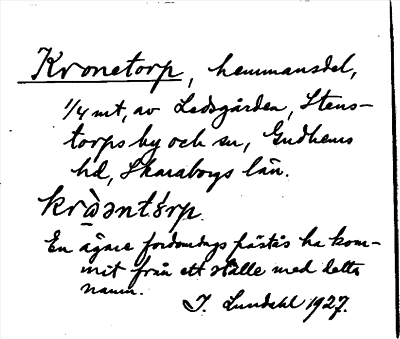 Kronetorp, hemmansdel,
1/4 mt, av Ledsgården, Stens-
torps by och sn, Gudhems
hd, Skaraborgs län.
kràǝntórp.
En ägare fordomdags påstås ha kom-
mit från ett ställe med detta
namn.
J. Lundahl 1927.